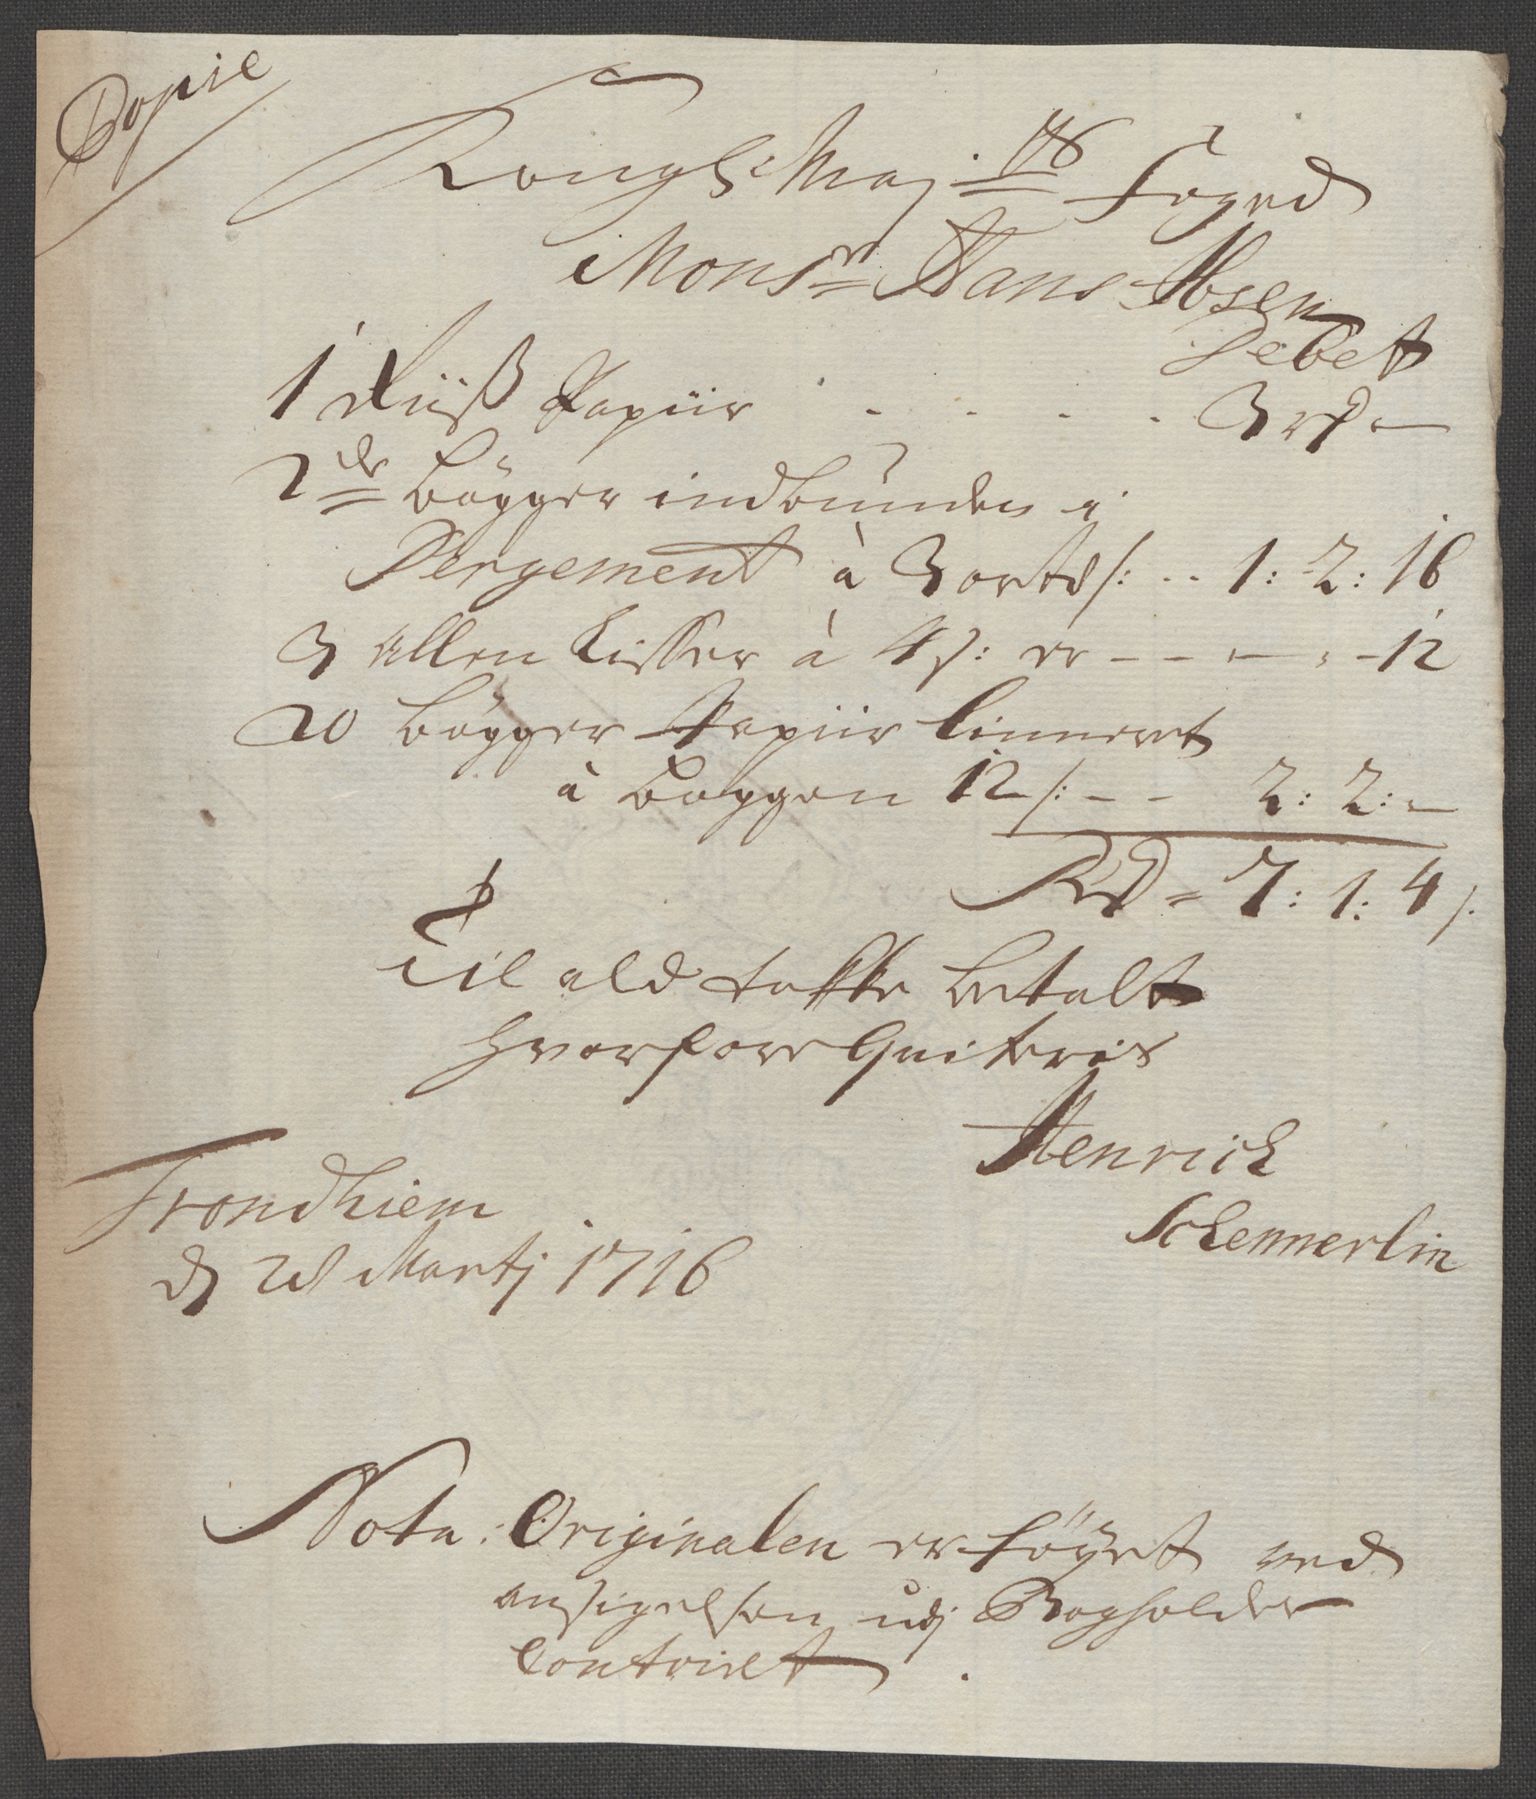 Copie
Kongl: Maj:ts Foged
Monsr Hans Ibsen
Debet
1 Riiß Papiir . . . . . 3 rd —
2de bögger indbunden i
Pergement à 3 ortd s: -- 1: 2: 16
3 allen Lisser à 4 s: er - - - - 12
20 bögger Papiir linneret
à boggen 12 s: - - 2: 2: —
Rd = 7: 1: 4 s.
Til ald takke betalt
hvorfore Quiteris
Henrich
Schemmerlin
Trondhiem
d 28 Martj 1716
Nota: Originalen er föyet ved
ansigelsen udj Bogholder
Contoiret.